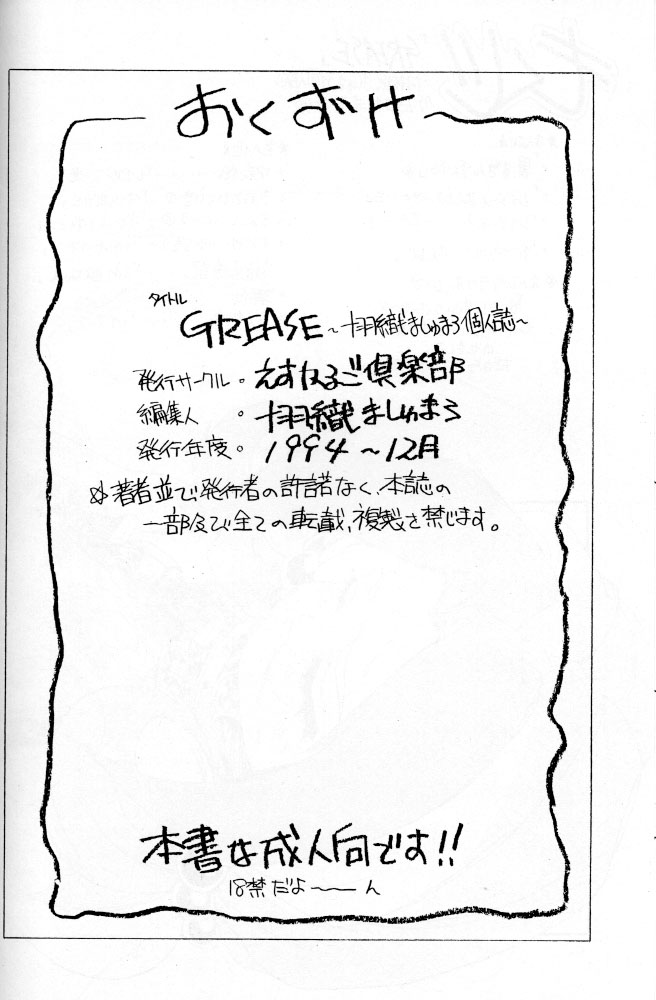 おくずけ
タイトル
GREASE ～羽織ましゅまろ個人誌～
発行サークル。えすねるご倶楽部
編集人 。羽織ましゅまろ
発行年度。1994～12月
著者並び発行者の許諾なく、本誌の
一部及び全ての転載、複製を禁じます。
本書は成人向です!!
18禁だよ〜ん